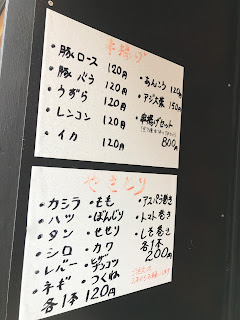 串揚げ
・豚ロース 120円
・豚バラ 120円
・うずら 120円
・レンコン 120円
・イカ 120円
・あんこう 120円
・アジ大葉 150円
・串揚げセット
800円
やきとり
・カシラ
・ハツ
・タン
・シロ
・レバー
・ネギ
・もも
・ぼんじり
・せせり
・カワ
・ヒザナンコツ
・つくね
各1本 120円
・アスパラ巻き
・トマト巻き
・しそ巻き
各1本
200円